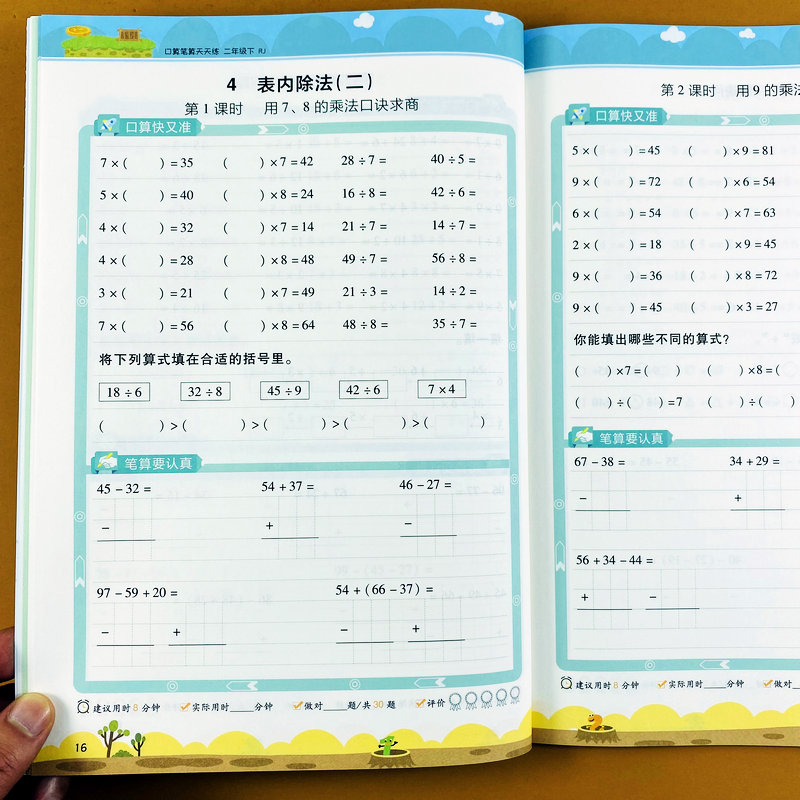 口算笔算天天练 二年级下 RJ
4 表内除法(二)
第1课时 用7、8的乘法口诀求商
口算快又准
7×( )=35 ( )×7=42 28÷7= 40÷5=
5×( )=40 ( )×8=24 16÷8= 42÷6=
4×( )=32 ( )×7=14 21÷7= 14÷7=
4×( )=28 ( )×8=48 49÷7= 56÷8=
3×( )=21 ( )×7=49 21÷3= 14÷2=
7×( )=56 ( )×8=64 48÷8= 35÷7=
将下列算式填在合适的括号里。
18÷6 32÷8 45÷9 42÷6 7×4
( )>( )>( )>( )>( )
笔算要认真
45-32= 54+37= 46-27=
- + -
97-59+20= 54+(66-37)=
- + - +
建议用时8分钟 实际用时____分钟 做对____题/共30题 评价
16
第2课时 用9的乘法
口算快又准
5×( )=45 ( )×9=81
9×( )=72 ( )×6=54
6×( )=54 ( )×7=63
2×( )=18 ( )×9=45
9×( )=36 ( )×8=72
9×( )=45 ( )×3=27
你能填出哪些不同的算式?
( )×7=( ) ( )×8=(
( )÷( )=7 ( )÷( )
笔算要认真
67-38= 34+29=
- +
56+34-44=
+ -
建议用时8分钟 实际用时____分钟 做对